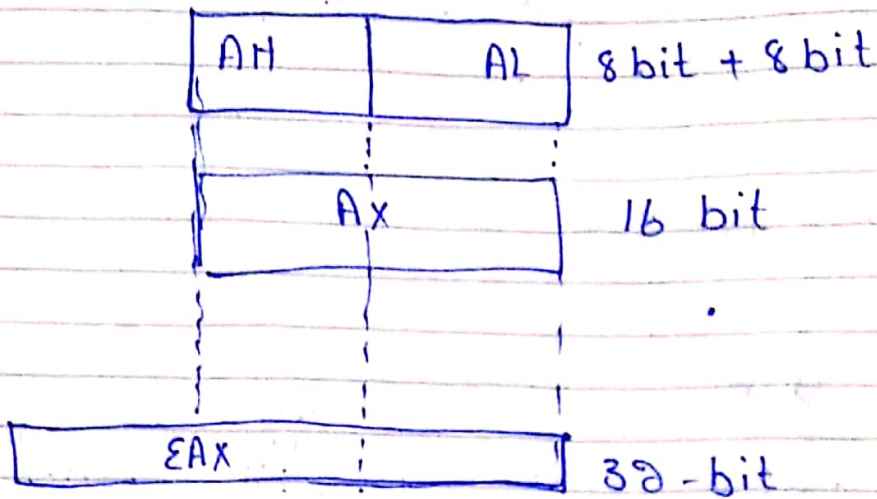 AH AL 8 bit + 8 bit
AX 16 bit
EAX 32-bit